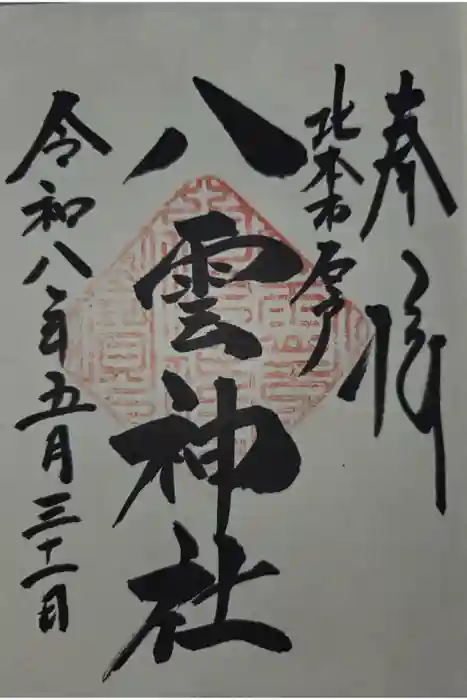 奉拝
北本市原
八雲神社
令和八年五月三十一日